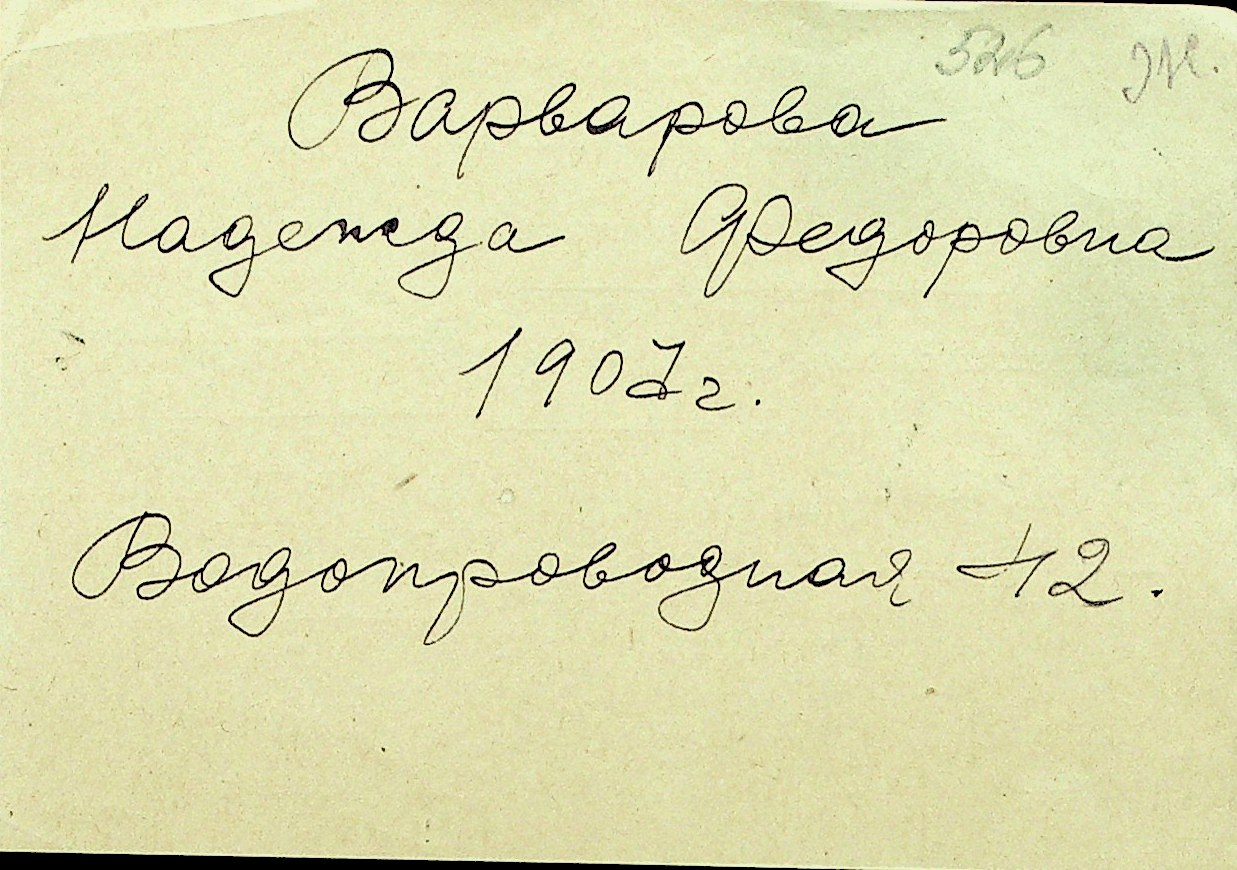 526
Варварова
Надежда Федоровна
1907 г.
Водопроводная 42.